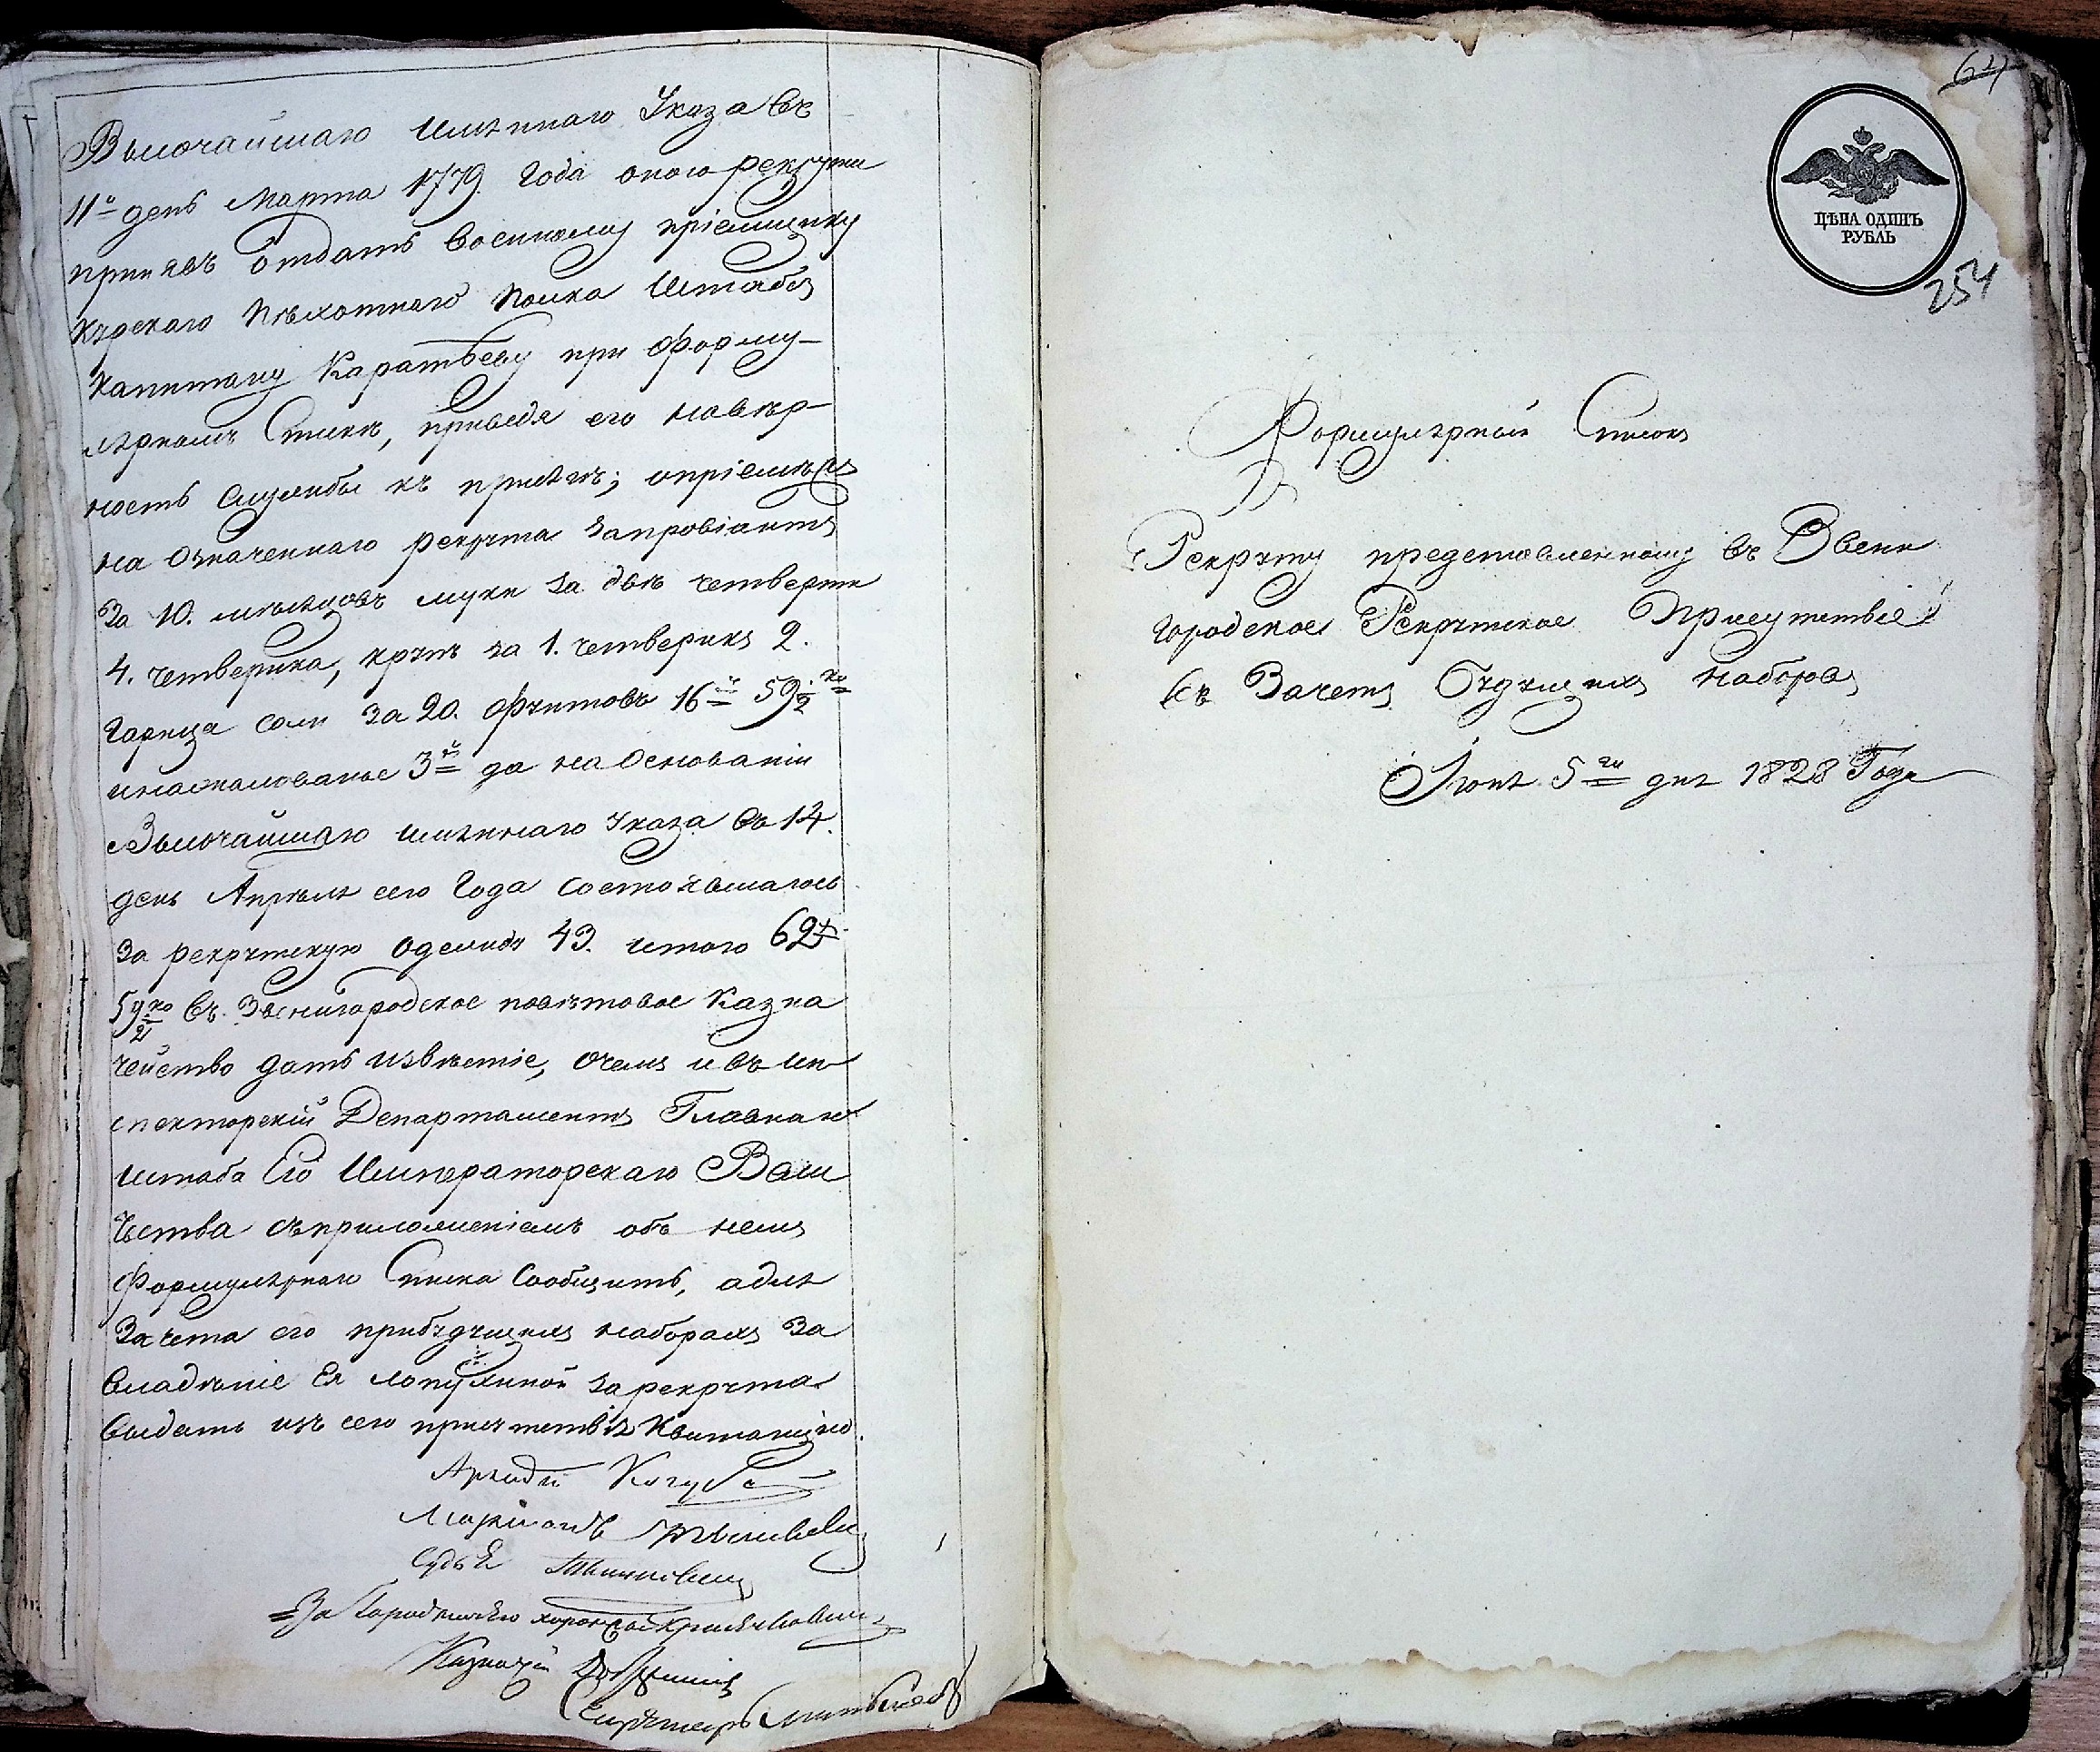 Высочайшаго имяннаго Указа въ
11й день Марта 1779 Года оного рекрута
принявъ отдать военному пріемщику
Курскаго пѣхотнаго полка Штабсъ
капитану Каратѣеву при форму-
лярномъ Списке, приведя его наверность
ность службы къ присягѣ; опріемкѣ
на означеннаго рекрута запровіантъ
За 10. мѣсяцовъ муки за двѣ четверти
4. четверика, крупъ за 1. четверикъ 2.
Гарнца соли за 20. фунтовъ 16й 59½ ко
инажалованье 3й да на основаніи
Высочайшаго имяннаго указа въ 14.
день Апрѣля сего Года состоявшагось
за рекрутскую одежду 43. итого 62й
59½ ко въ Звенигородское повѣтовое Казна
чейство дать извѣстіе, очемъ и въ ин
спекторскій Департаментъ Главнаго
штаба Его Императорскаго Вели
чества съприложеніемъ объ немъ
Формулярнаго Списка Сообщить, адля
Зачета его прибудущихъ наборахъ За
владѣніе Ея Лопухиной зарекрута
выдать изъ сего присутствія Квитанцію.
Судья
За Городничего
Казначей
Секретарь
ЦѢНА ОДИНЪ
РУБЛЬ
254
Формулярный Списокъ
Рекруту представленному въ Звени
городское Рекрутское Присутствіе
въ Зачетъ Будущихъ наборовъ
Іюня 5го дня 1828 Года